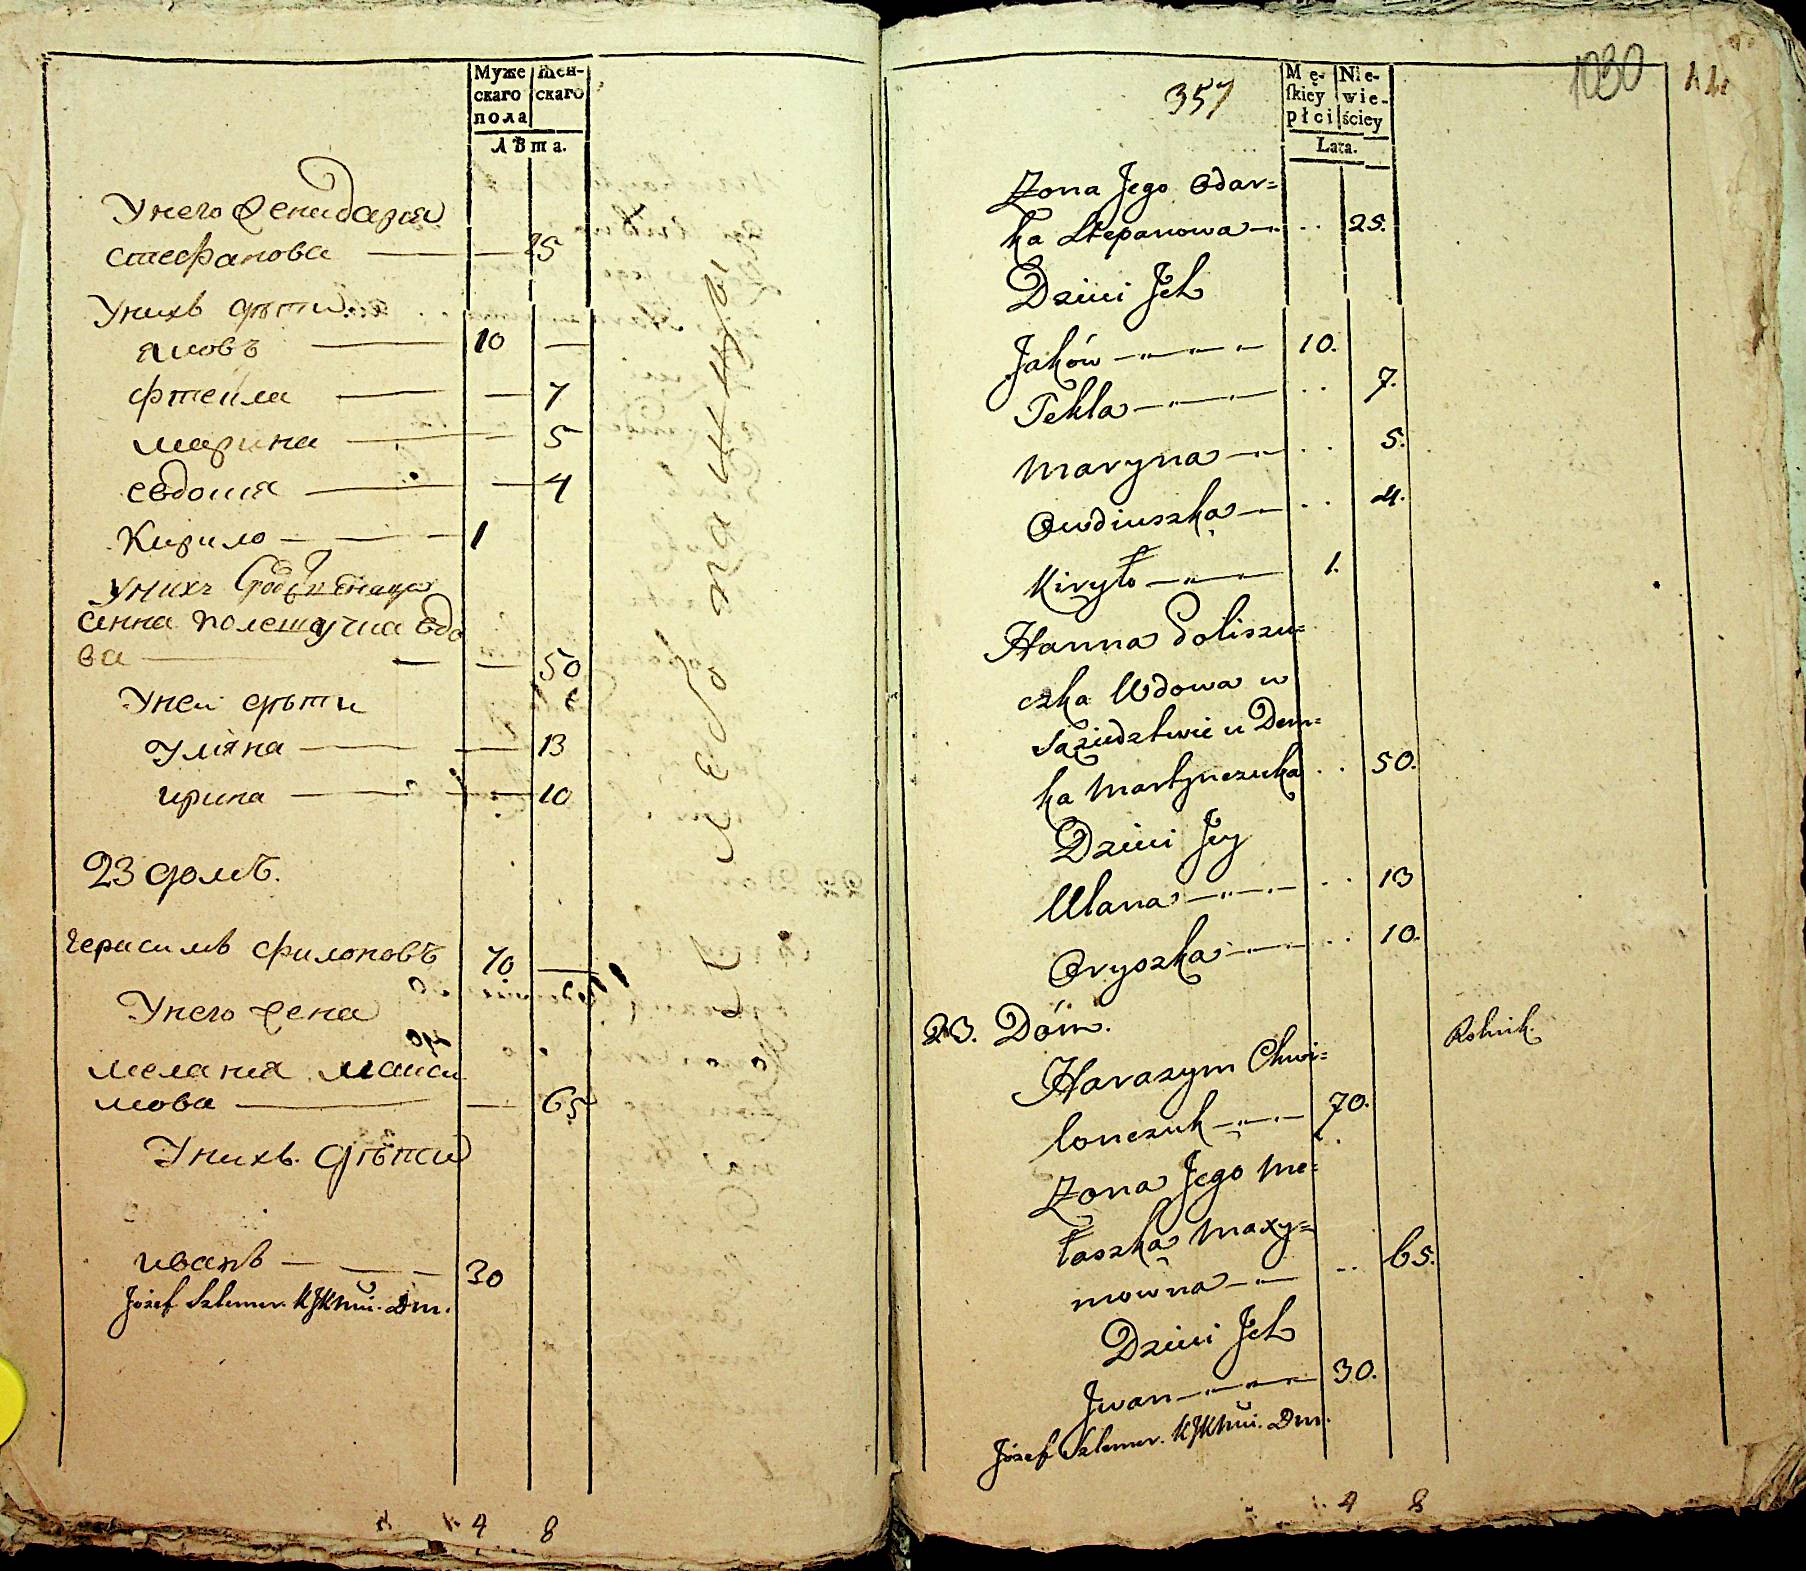 Муже
скаго
пола
Жен-
скаго
Лѣта.
Унего жена дарія
стефанова — — 25
Унихъ дѣти
яковъ — 10 —
фтекла — — 7
марина — — 5
евдокія — — 4
Кирило — — 1
унихъ
анна полещучка вдо
ва — — 50
Унеи дѣти
Уляна — — 13
ирина — — 10
23 домъ.
Герасимъ филоновъ 70 —
Унего жена
меланія макси
мова — — 65
Унихъ дѣти
иванъ — — 30
Józef Szlemer. KJKMći. Dm.
4 8
357
1030
Mę-
ſkiey
płci
Nie-
wie-
ściey
Lata.
Zona Jego Odar=
ka Stepanowa — .. 25.
Dzieci Jch
Jaków — — — 10.
Tekla — — — .. 7.
Maryna — .. 5.
Owdiuszka — .. 4.
Kiryło — — 1.
Hanna Poliszu=
czka Wdowa w
Sąsiedztwie u Dem=
ka Martynczuka .. 50.
Dzieci Jey
Ulana — — .. 13
Oryszka — — .. 10.
23. Dóm.
Rolnik.
Harasym Chwi=
lonczuk — — 70.
Zona Jego Me=
łaszka Maxy=
mowna — — .. 65.
Dzieci Jch
Jwan — — — 30.
Józef Szlemer. KJKMći. Dm.
4 8